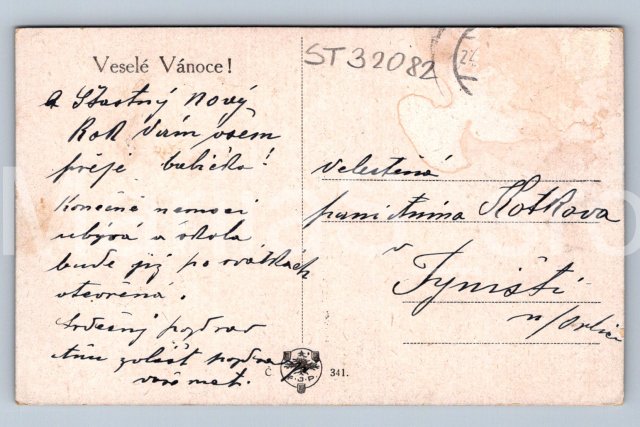 Veselé Vánoce!
a Šťastný nový
Rok Vám všem
přeje babička!
Konečně nemoci
ubývá a škola
bude již po svátkách
otevřená.
Srdečný pozdrav
zvlášť pozdra
ST32082
24
velectěná
paní Anna Kotkova
v
Týništi
n/Orlicí
Č 341.
P.J.P.